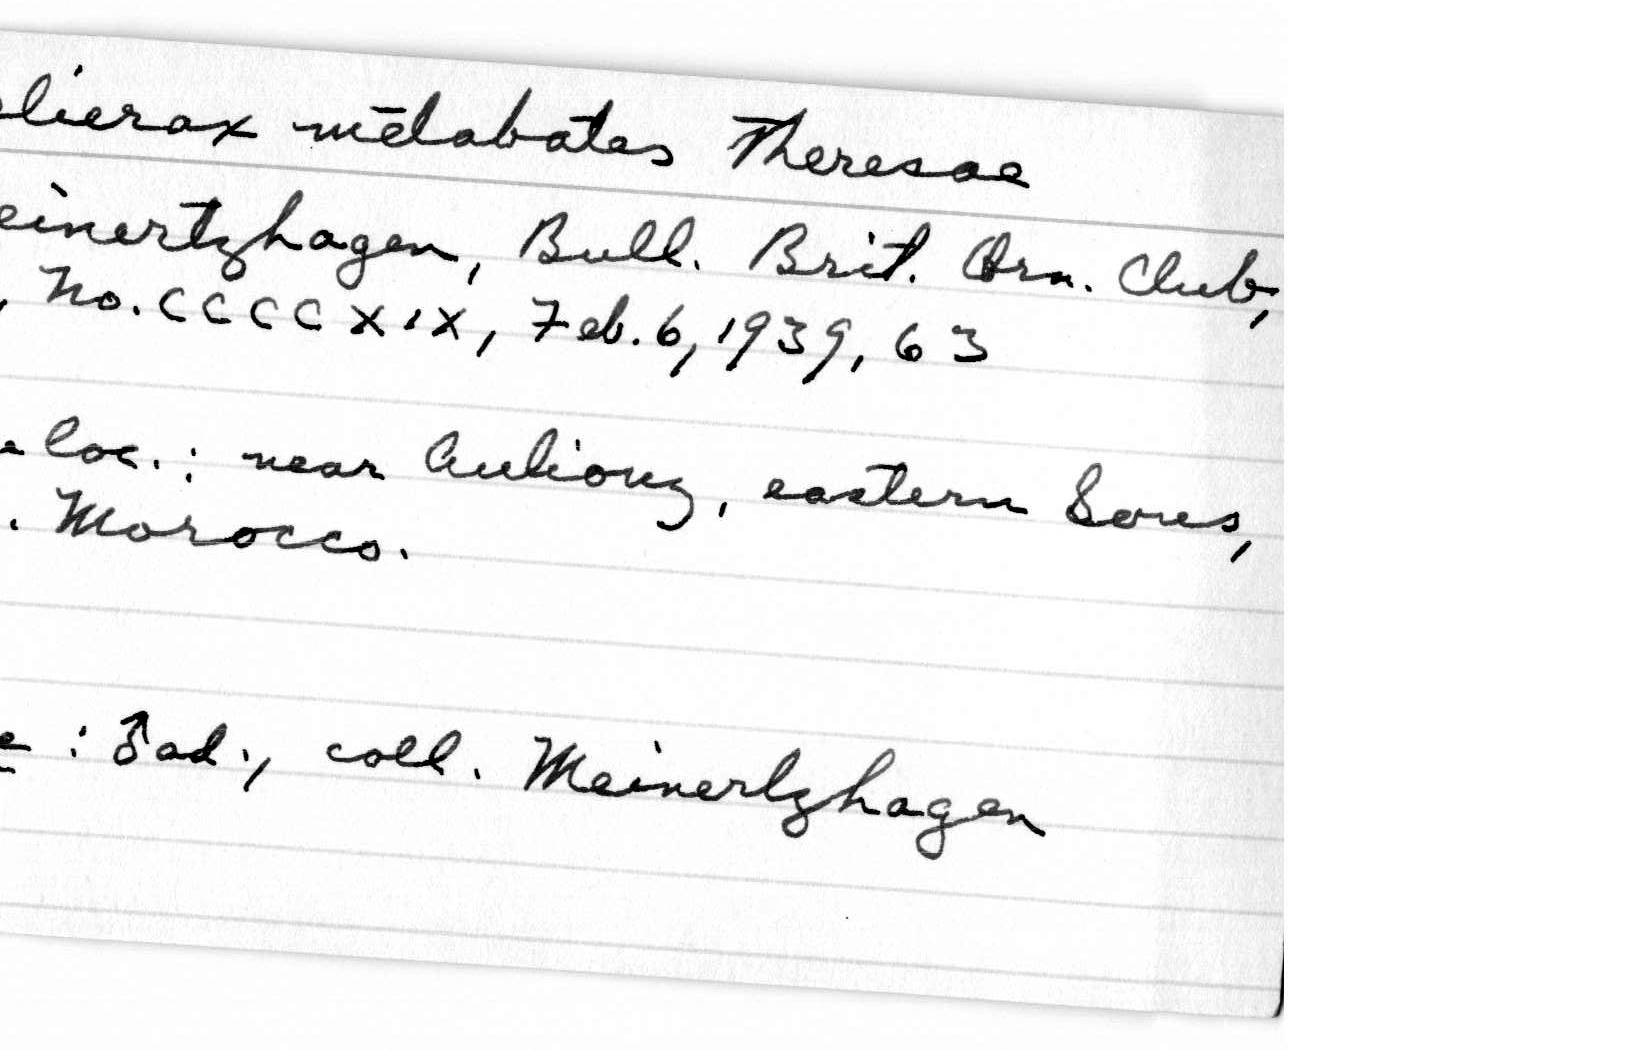 lierax metabates Theresae
einertzhagen, Bull. Brit. Orn. Club,
, No. CCCCXIX, Feb. 6, 1939, 63
loc. : near Auliouz, eastern Sous,
. Morocco.
e : ♂ ad., coll. Meinertzhagen